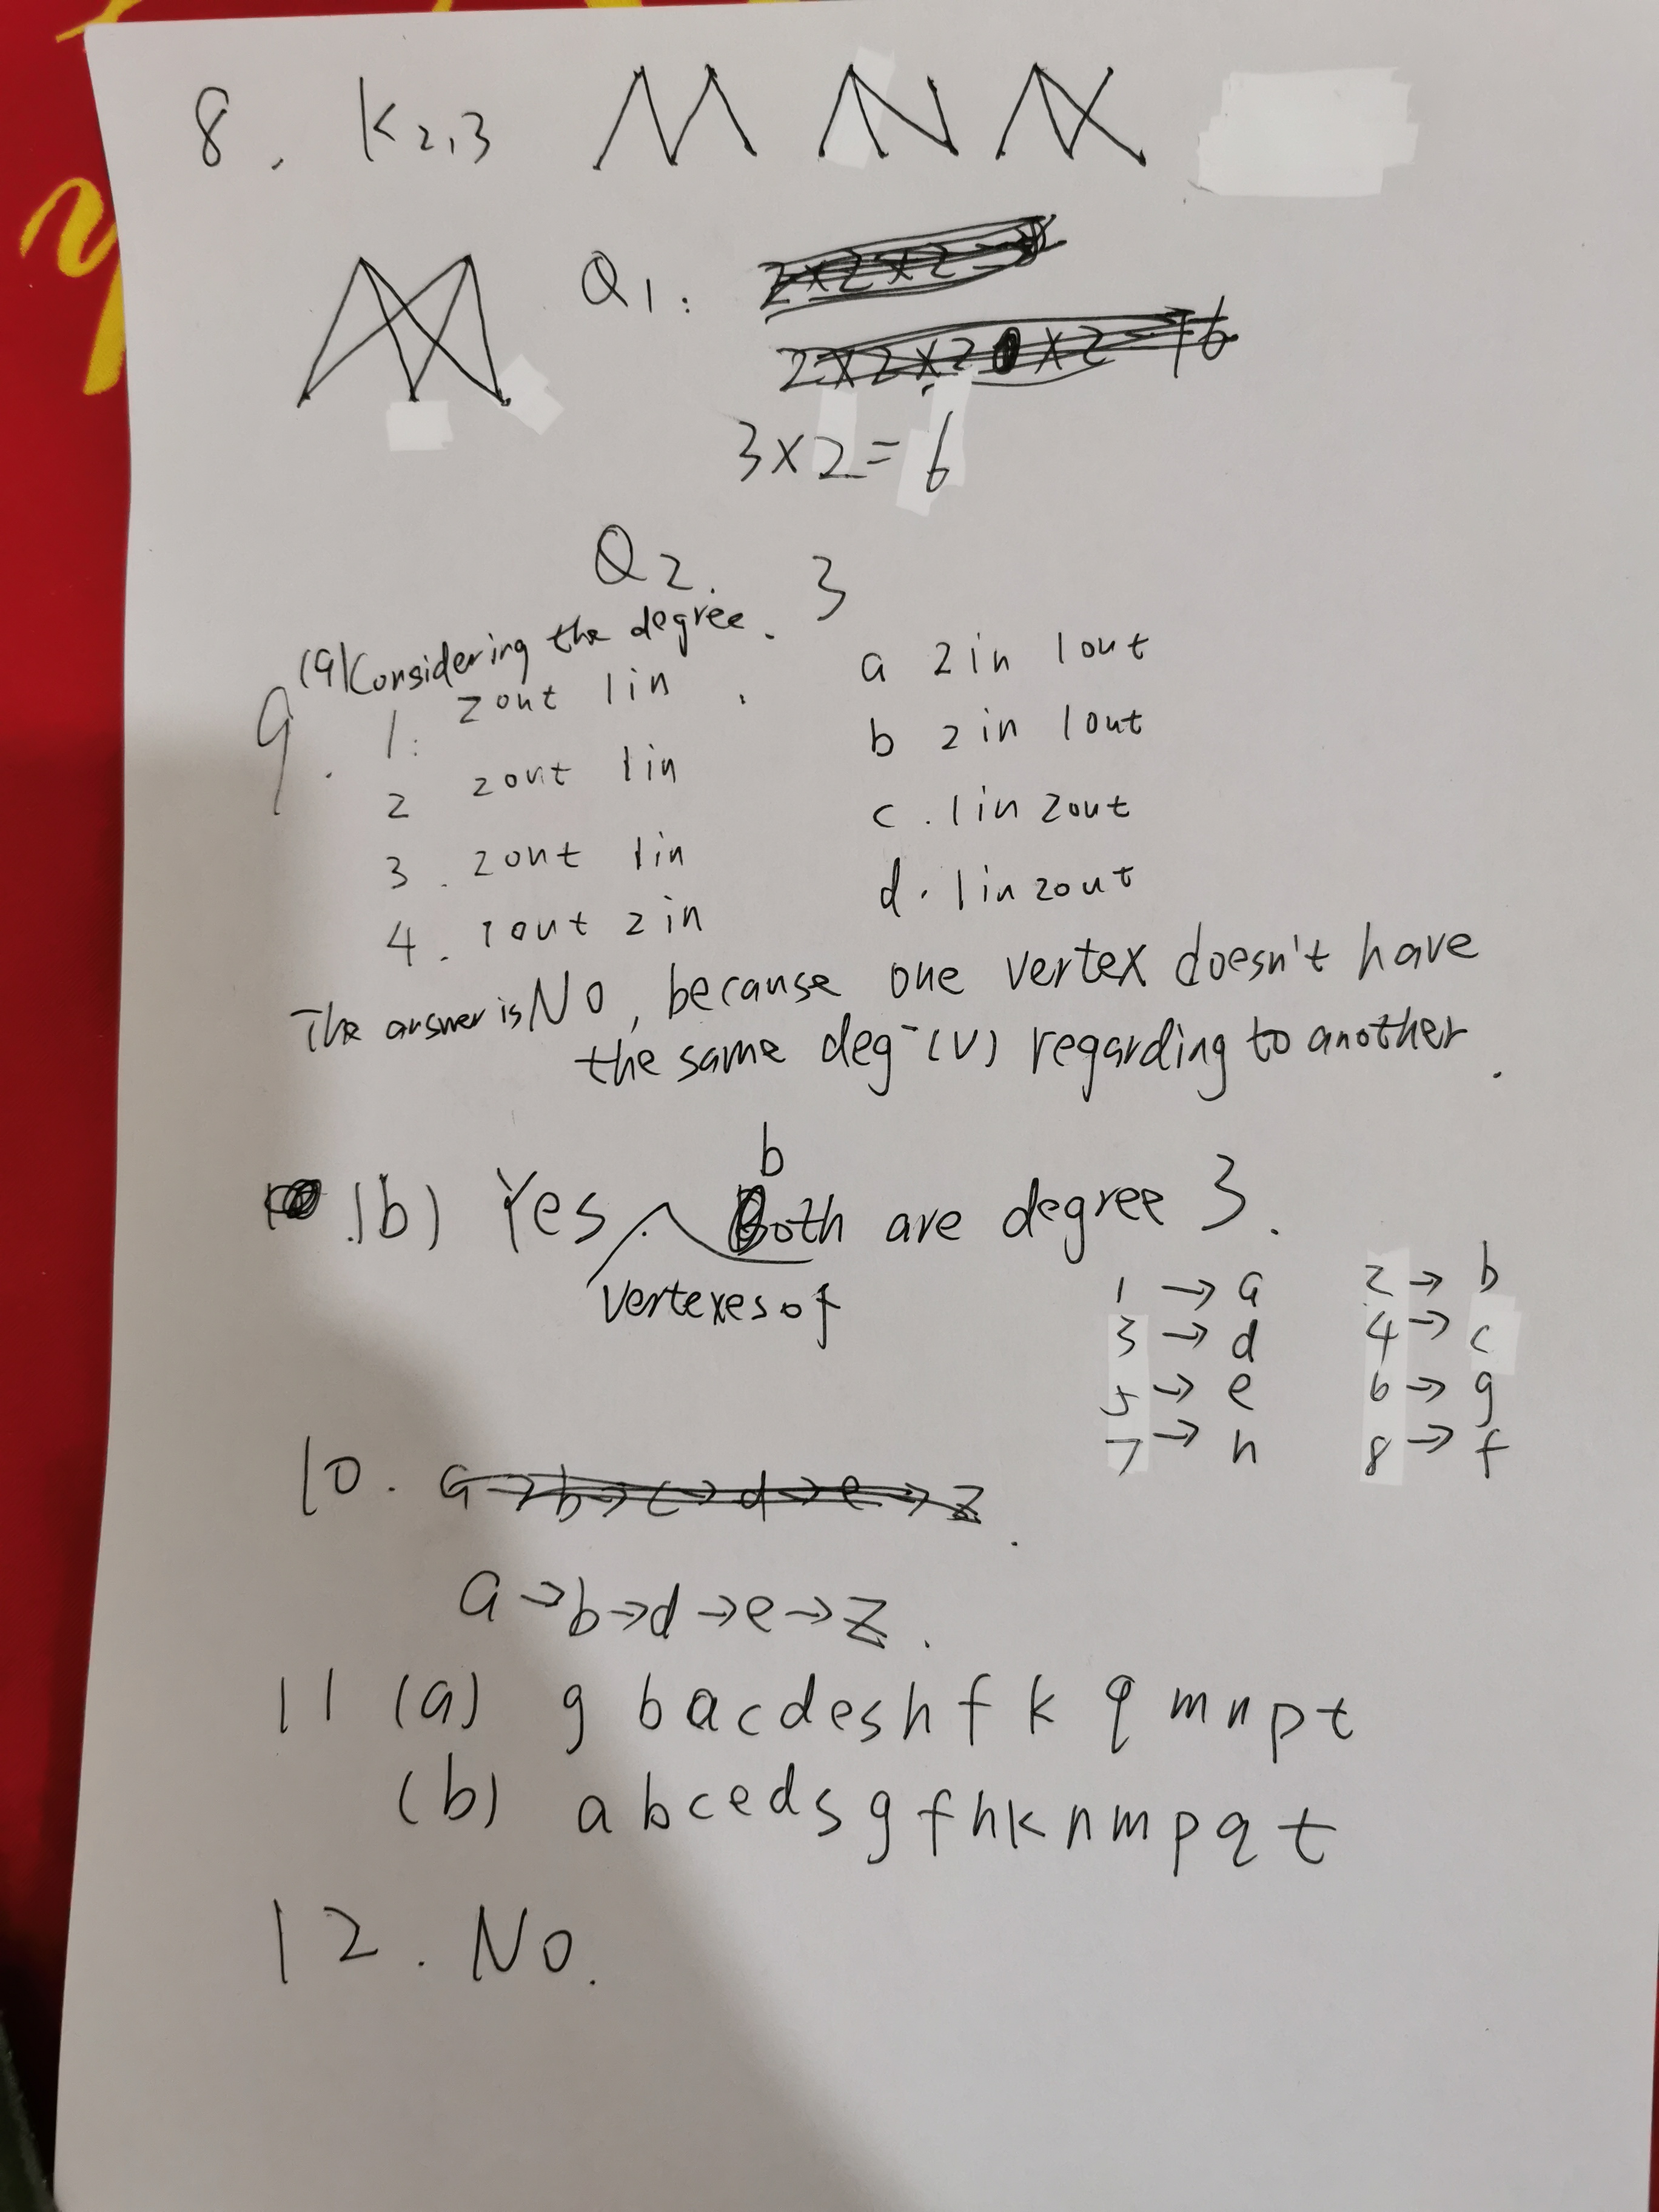 8. K2,3
Q1:
2×2×2×2=16
3×2=6
Q2. 3
9. (a) Considering the degree.
1: 2out 1in, a 2in 1out
2 2out 1in b 2in 1out
3. 2out 1in c. 1in 2out
4. 1out 2in d. 1in 2out
The answer is No, because one vertex doesn't have
the same deg⁻(v) regarding to another.
(b) Yes. vertexes of both are degree 3.
1→a 2→b
3→d 4→c
5→e 6→g
7→h 8→f
10. a→b→c→d→e→z.
a→b→d→e→z.
11 (a) g b a c d e s h f k q m n p t
(b) a b c e d s g f h k n m p q t
12. No.